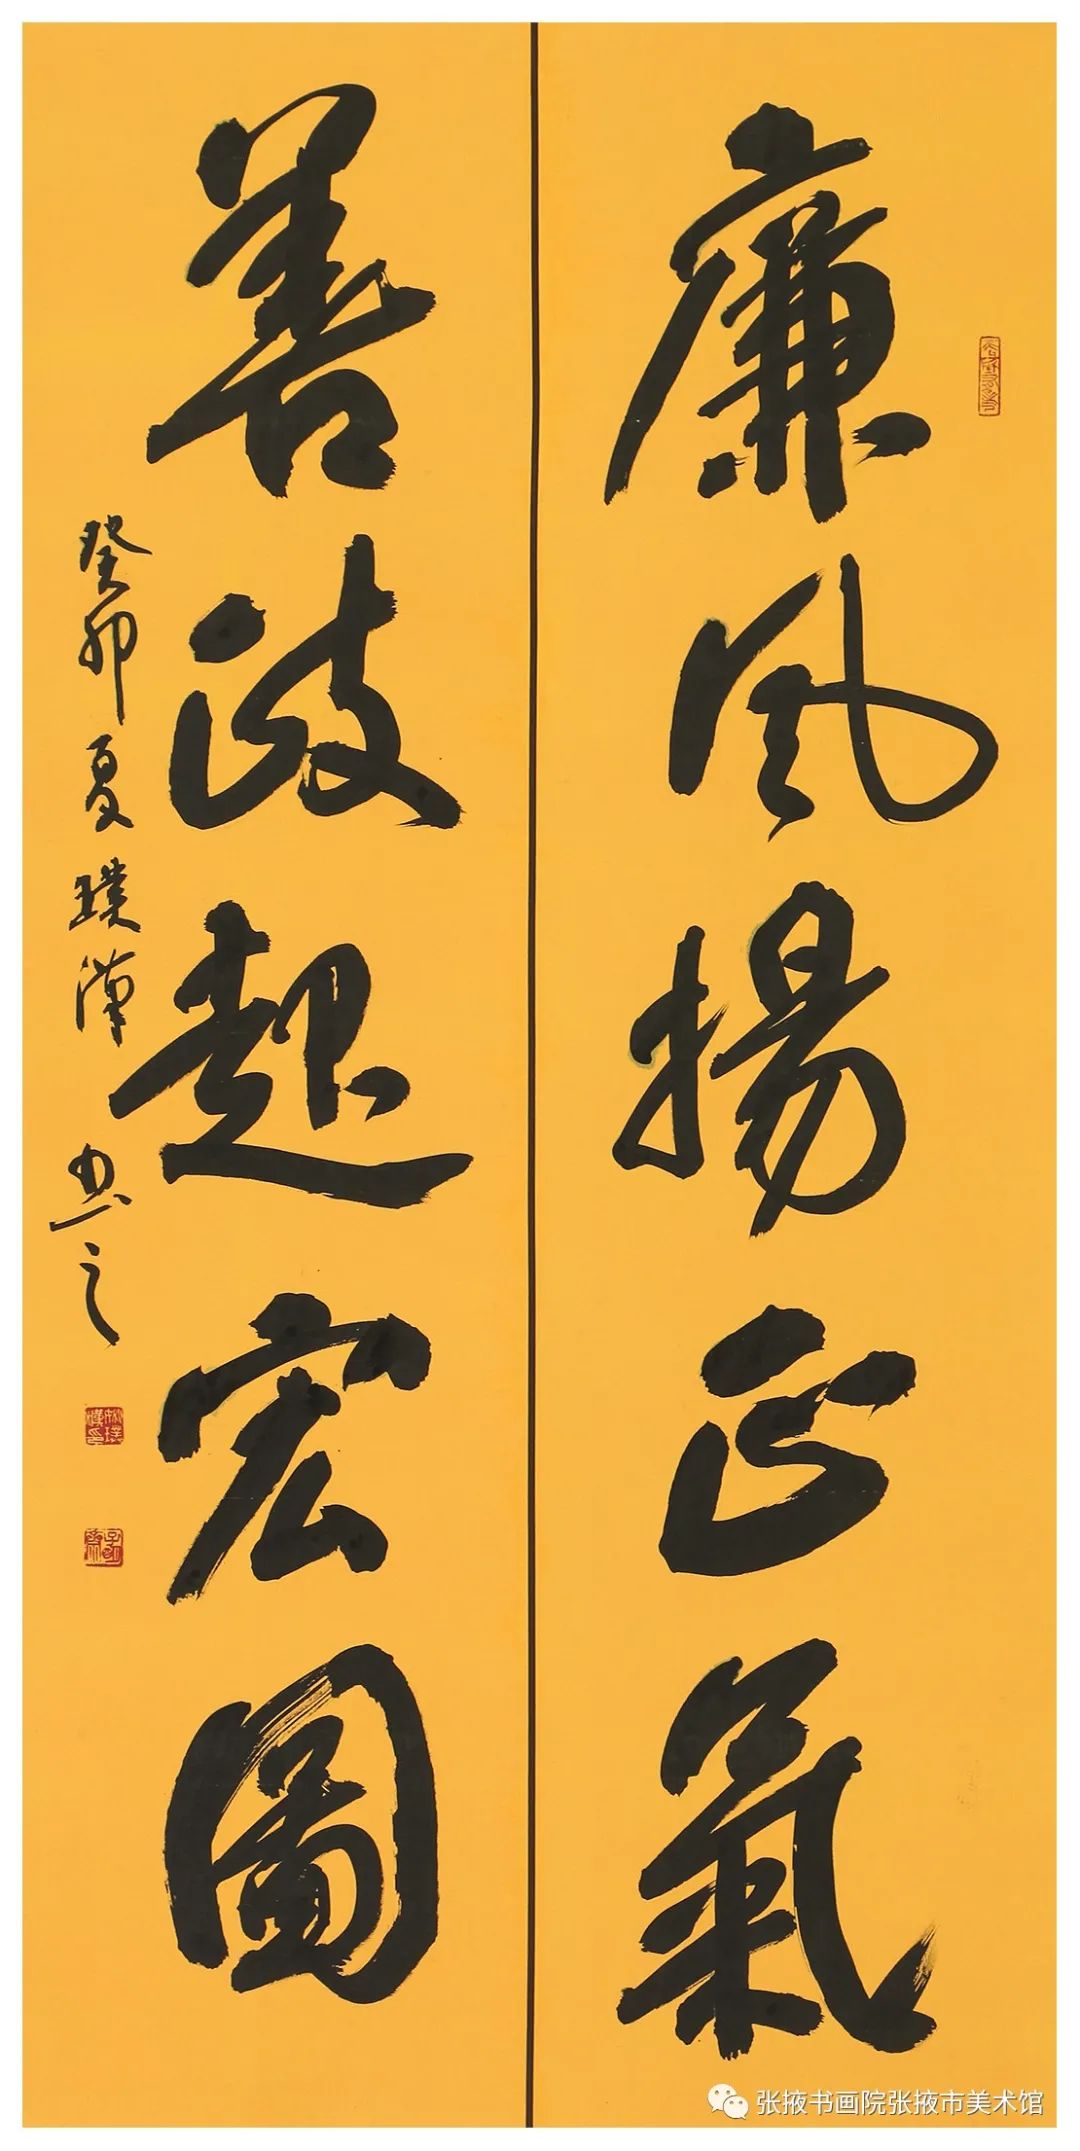 廉風揚正氣
善政起宏圖
癸卯夏 璞漢書之
张掖书画院张掖市美术馆